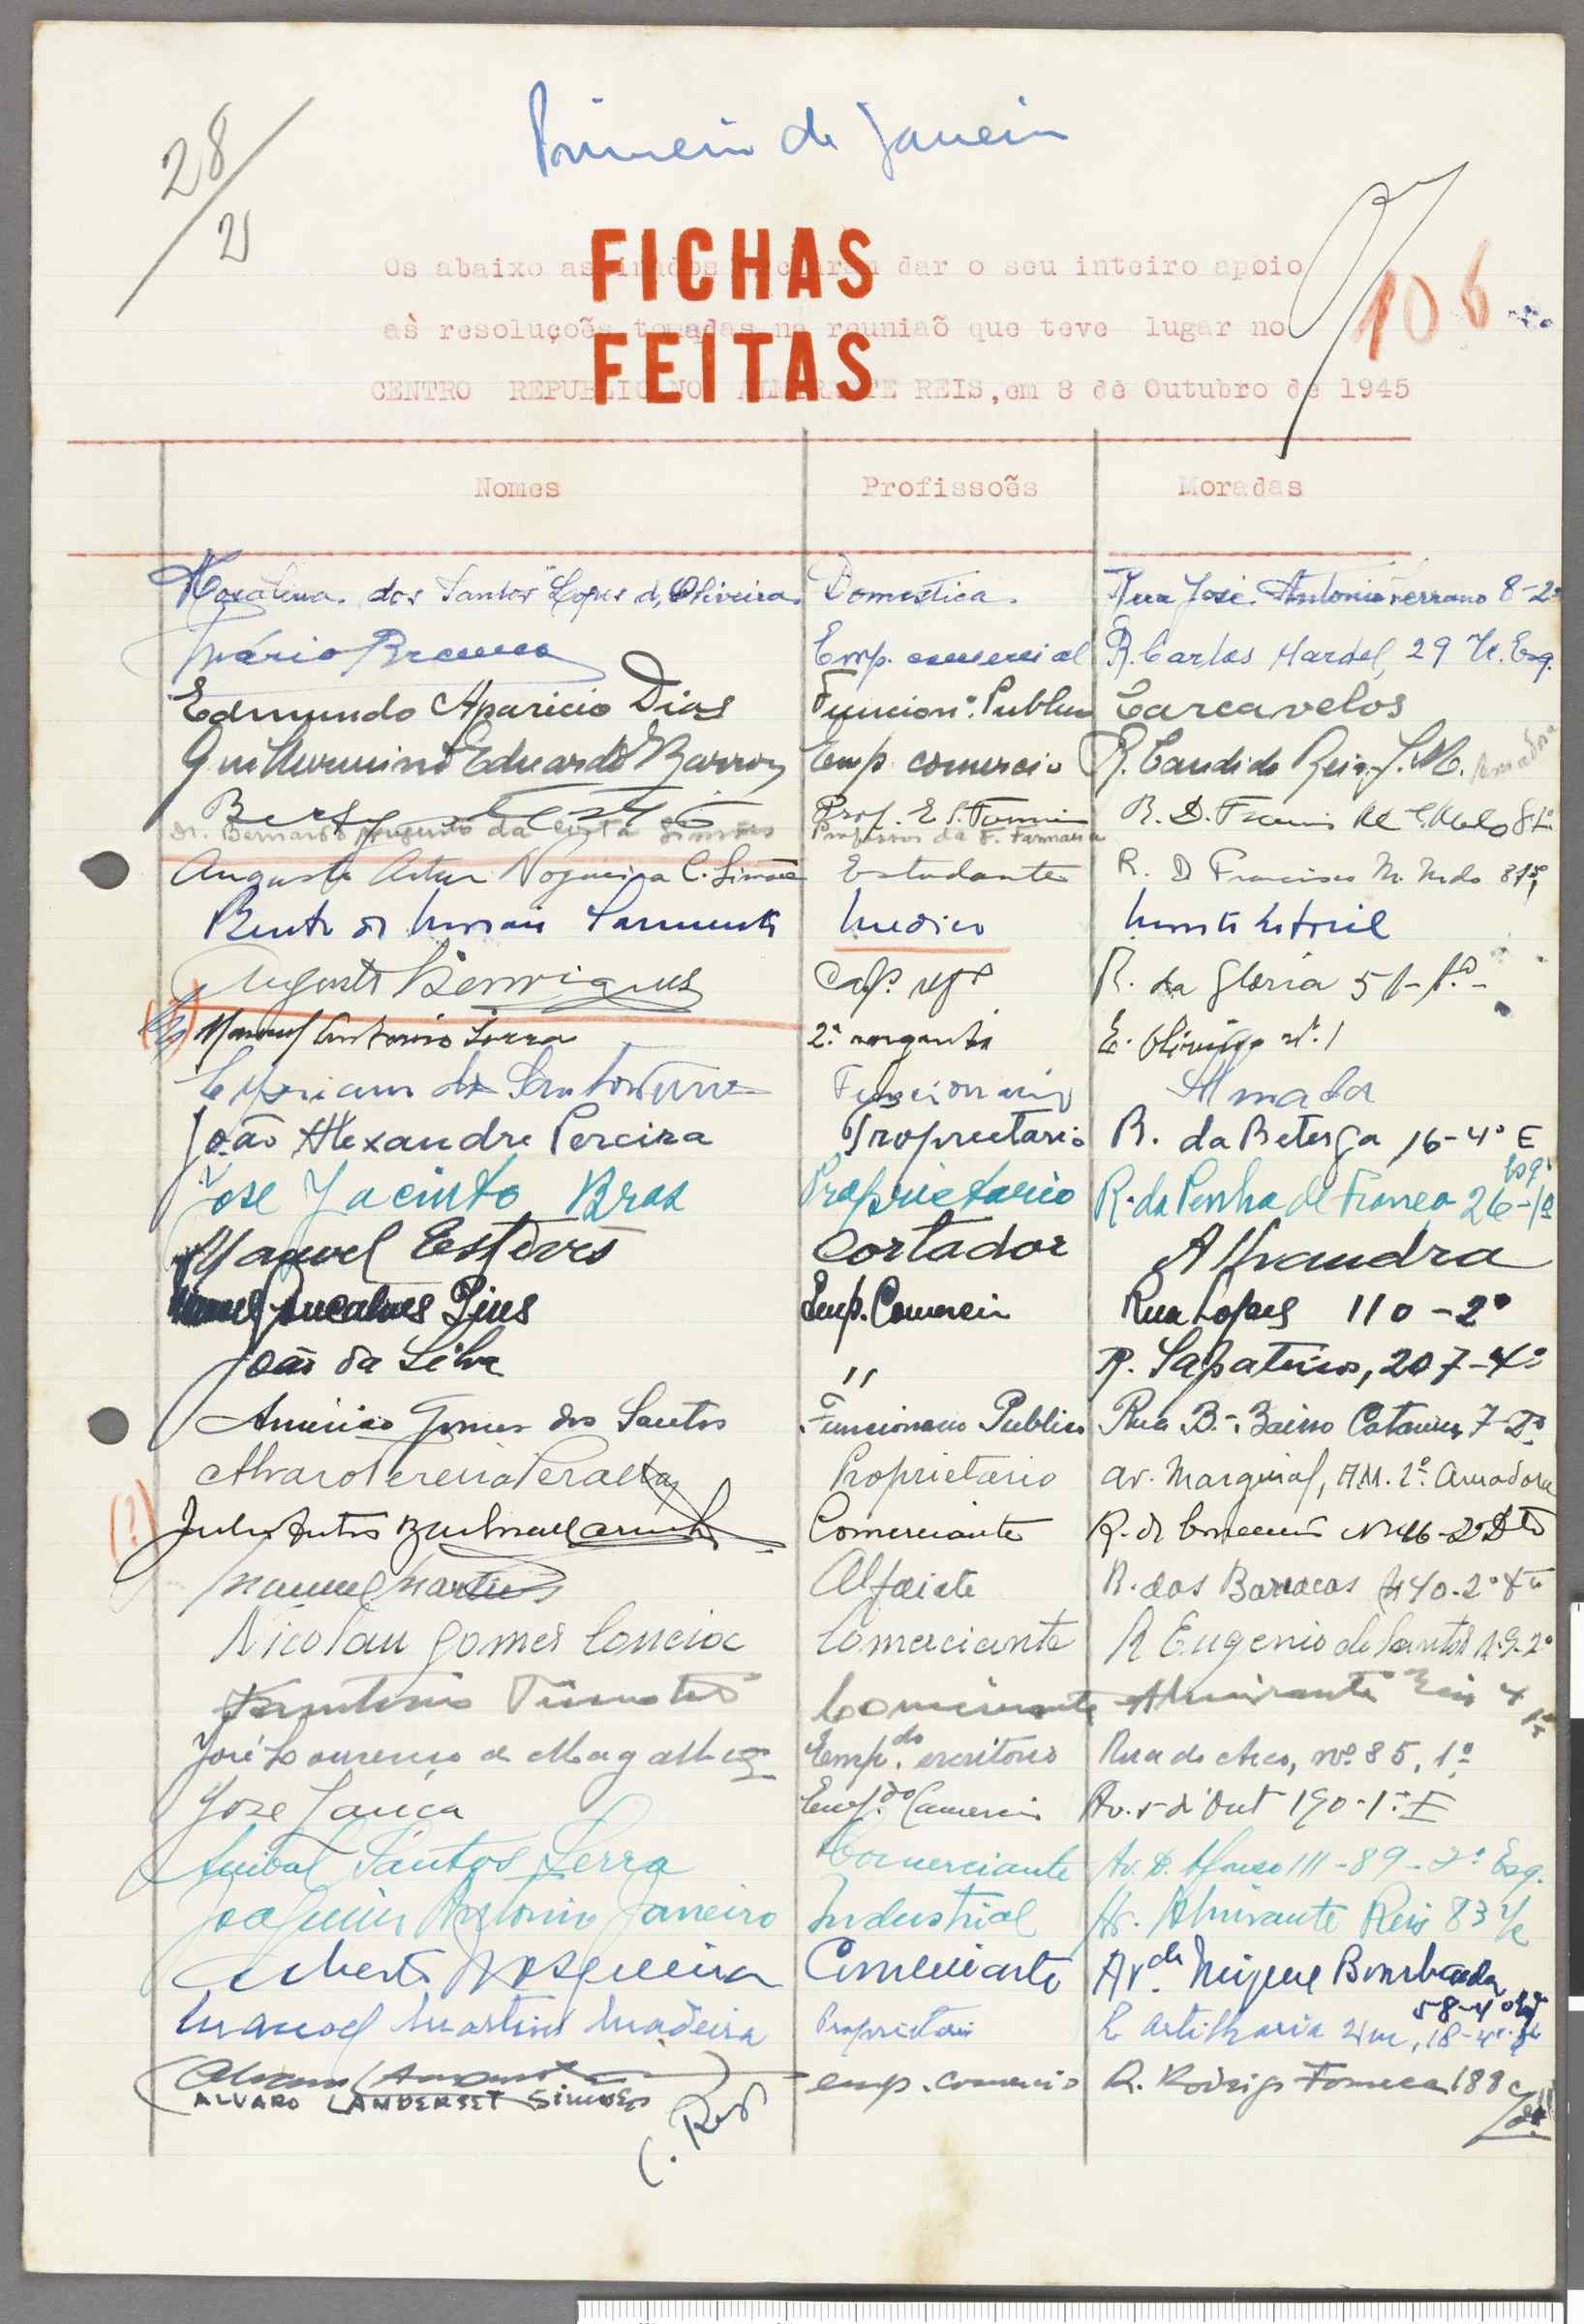 28/2
Primeiro de Janeiro
FICHAS
FEITAS
Os abaixo assinados declaram dar o seu inteiro apoio
às resoluçoẽs tomadas na reuniaõ que teve lugar no
CENTRO REPUBLICANO ALMIRANTE REIS, em 8 de Outubro de 1945
106
Nomes Profissoẽs Moradas
dos Santos Lopes d'Oliveira Domestica. Rua José Antonio Serrano 8-2º
Mário Emp. comercial R. Carlos Mardel, 29 r/c. Esq.
Edmundo Aparicio Dias Funcion.º Publico Carcavelos
Guilhermino Eduardo Barros Emp comercio R. Candido Reis J.M. Amadora
Prof. R. D. Melo
Dr. Bernardo Augusto da Costa Simões Professor da F. Farmacia
Augusto Artur Nogueira C. Simões Estudante R. D Francisco M. Melo
Bento de Morais Sarmento Medico Monte Estoril
Augusto Henriques Cap. refº R. da Gloria 51-1.º-
(?) Manuel Antonio Serra 2.º sargento nº. 1
Funcionario Almada
João Alexandre Pereira Proprietario R. da Betesga 16-4º E
José Jacinto Bras Proprietario R. da Penha de França 26-1º Esqº
Manuel Esteves Cortador Alhandra
Gonçalves Pires Emp. Comercio Rua Lopes 110-2º
João da Silva " R. Sapateiros, 207-4º
Gomes dos Santos Funcionario Publico Rua B. Bairro 7
Alvaro Pereira Peralta Proprietario Av. Marginal, A.M. 2º. Amadora
(?) Comerciante
Manuel Martins Alfaiate R. dos Barracas 40-2º
Nicolau Gomes Correia Comerciante R Eugenio do Santos 2º
Antonio Comerciante Almirante Reis 4
José Lourenço de Magalhães Emp.do escritorio Rua do Arco, nº 85, 1º
Jose Janica Emp.do Comercio Av. 5 de Out 190-1º E
Anibal Santos Serra Comerciante Av. D. Afonso III-89-2º Esq.
Joaquim Antonio Janeiro Industrial Av. Almirante Reis 83 r/c
Nosqueira Comerciante Avda Miguel Bombarda
58-4º
Manoel Martins Madeira Proprietario R Artilharia Um, 18-4º
emp. comercio R. Rodrigo Fonseca 188
ALVARO LANDERSET SIMÕES